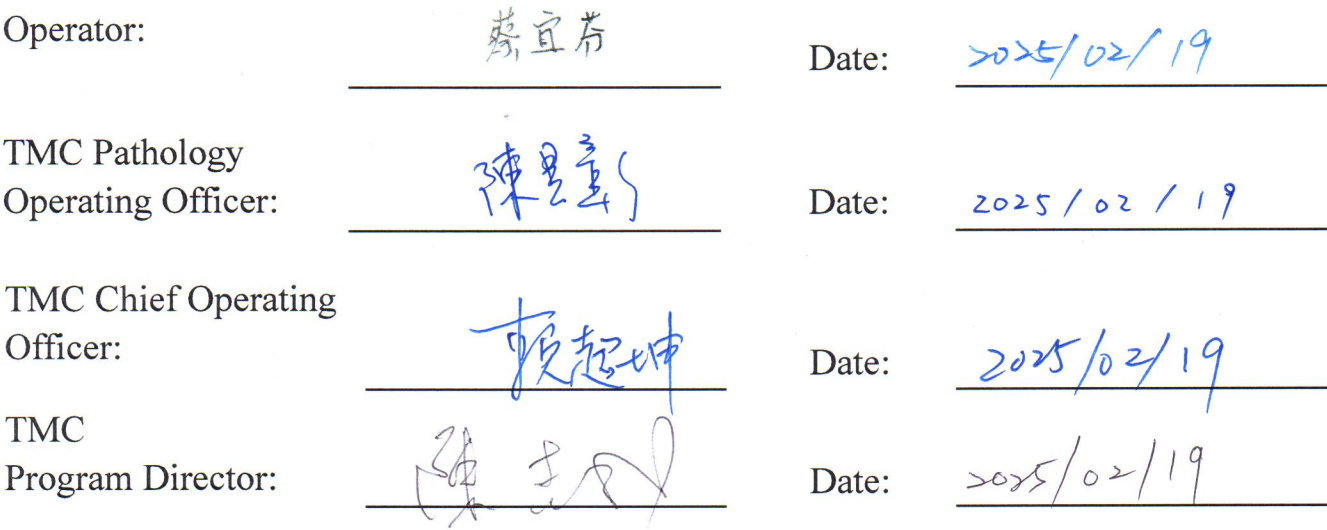 Operator: 蔡宜芬 Date: 2025/02/19
TMC Pathology
Operating Officer: 陳昱彰 Date: 2025/02/19
TMC Chief Operating
Officer: 賴超坤 Date: 2025/02/19
TMC
Program Director: 陳志 Date: 2025/02/19